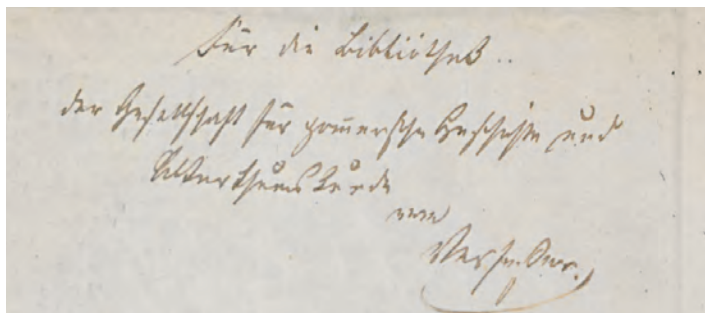 Für die Bibliothek
der Gesellschaft für pommersche Geschichte und
Alterthumskunde
vom